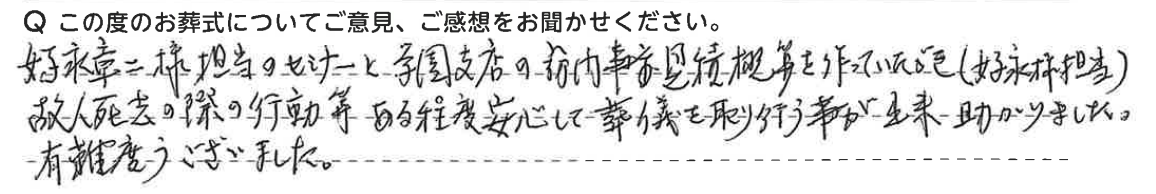 Q この度のお葬式についてご意見、ご感想をお聞かせください。
好永章二様担当のセミナーと学園支店の案内事前見積概算を作っていただき(好永様担当)
故人死去の際の行動等ある程度安心して葬儀を取り行う事が出来助かりました。
有難度うございました。